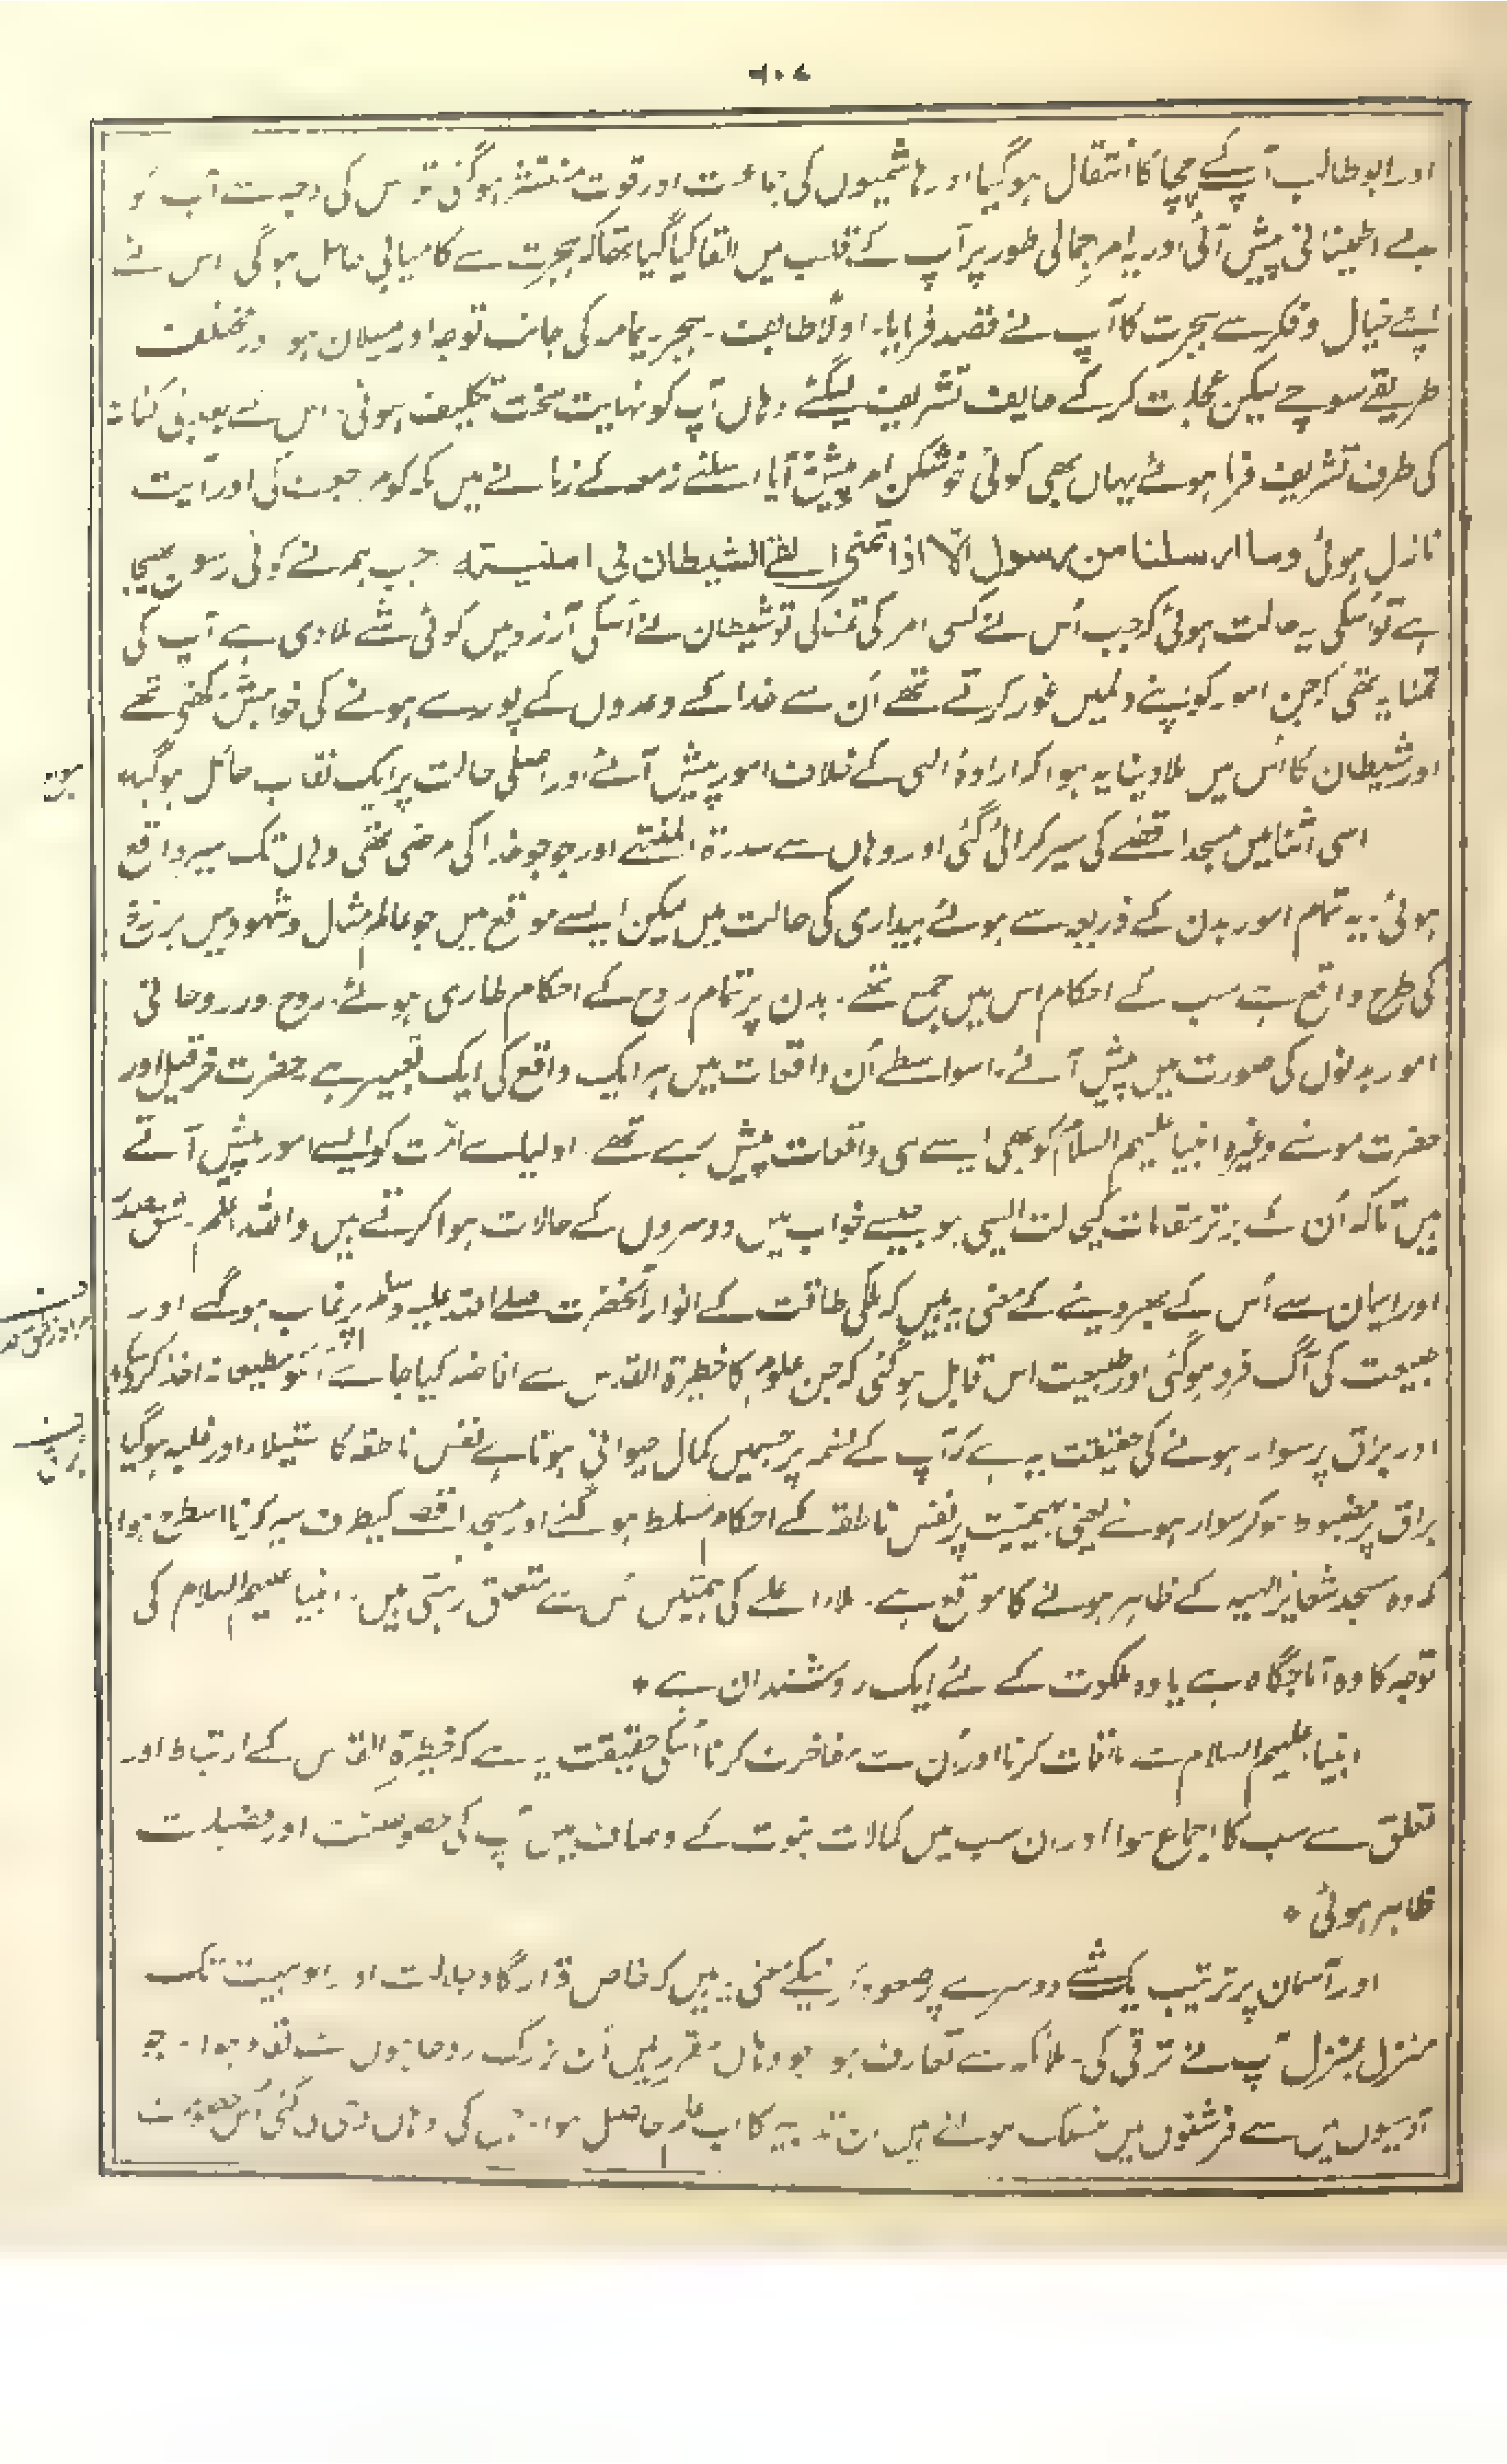 ۶۰۷
اور ابو طالب آپ کے چچا کا انتقال ہو گیا اور ہاشمیوں کی جماعت اور قوت منتشر ہو گئی تو اس کی وجہ سے آپ کو
بے اطمینانی پیش آئی اور یہ امر اجمالی طور پر آپ کے قلب میں القا کیا گیا تھا کہ ہجرت سے کامیابی حاصل ہو گی اس لئے
اپنے خیال و فکر سے ہجرت کا آپ نے قصد فرمایا۔ اولاً طایف۔ ہجر۔ یمامہ کی جانب توجہ اور میلان ہوا اور مختلف
طریقے سوچے لیکن عجلت کر کے طایف تشریف لیگئے وہاں آپ کو نہایت سخت تکلیف ہوئی۔ اس کے بعد بنی کنانہ
کی طرف تشریف فرما ہوئے یہاں بھی کوئی خوشکن امر پیش نہ آیا اسلئے زمعہ کے زمانے میں مکہ کو مراجعت کی اور آیت
نازل ہوئی وما ارسلنا من رسول الا اذا تمنی القے الشیطان فی امنیتہ جب ہم نے کوئی رسول بھیجا
ہے تو اسکی یہ حالت ہوئی کہ جب اُس نے کسی امر کی تمنا کی تو شیطان نے اسکی آرزو میں کوئی شے ملا دی ہے آپ کی
تمنا یہ تھی کہ جن امور کو اپنے دلمیں غور کرتے تھے اُن سے خدا کے وعدوں کے پورے ہونے کی خواہش رکھتے تھے
اور شیطان کا اُس میں ملا دینا یہ ہوا کہ ارادۂ الہی کے خلاف امور پیش آئے اور اصلی حالت پر ایک نقاب حائل ہو گیا٭
اسی اثنا میں مسجد اقصٰے کی سیر کرائی گئی اور وہاں سے سدرۃ المنتہے اور جو جو خدا کی مرضی تھی وہاں تک سیر واقع
ہوئی۔ یہ تمام امور بدن کے ذریعہ سے ہوئے بیداری کی حالت میں لیکن ایسے موقع میں جو عالم مثال و شہود میں برزخ
کی طرح واقع ہے سب کے احکام اس میں جمع تھے۔ بدن پر تمام روح کے احکام طاری ہوئے۔ روح اور روحانی
امور بدنوں کی صورت میں پیش آئے۔ اسواسطے اُن واقعات میں ہر ایک واقع کی ایک تعبیر ہے حضرت حزقیل اور
حضرت موسٰے وغیرہ انبیا علیہم السلام کو بھی ایسے ہی واقعات پیش رہے تھے۔ اولیاے امت کو ایسے امور پیش آتے
ہیں تاکہ اُن کے برتر مقامات کی حالت ایسی ہو جیسے خواب میں دوسروں کے حالات ہوا کرتے ہیں واللہ اعلم۔ شق صدر
اور ایمان سے اُس کے بھر دینے کے معنی یہ ہیں کہ ملکی طاقت کے انوار آنحضرت صلے اللہ علیہ وسلم پر غالب ہو گئے اور
طبیعت کی آگ فرو ہو گئی اور طبیعت اس قابل ہو گئی کہ جن علوم کا خطیرۃ القدس سے افاضہ کیا جائے انکو مطیعانہ اخذ کر سکے٭
اور براق پر سوار ہونے کی حقیقت یہ ہے کہ آپ کے نسمہ پر جسمیں کمال حیوانی ہوتا ہے نفس ناطقہ کا استیلاء اور غلبہ ہو گیا
براق پر مضبوط ہو کر سوار ہونے یعنی بہیمیت پر نفس ناطقہ کے احکام مسلط ہو گئے اور مسجد اقصے کیطرف سیر کرنا اسطرح ہوا
کہ وہ مسجد شعایر الہیہ کے ظاہر ہونے کا موقع ہے۔ ملاء اعلے کی ہمتیں اُس سے متعلق رہتی ہیں۔ انبیا علیہم السلام کی
توجہ کا وہ آماجگاہ ہے یا وہ ملکوت کے لئے ایک روشندان ہے٭
انبیا علیہم السلام سے ملاقات کرنا اور اُن سے مفاخرت کرنا اُسکی حقیقت یہ ہے کہ خطیرۃ القدس کے ارتباط اور
تعلق سے سب کا اجماع ہوا اور ان سب میں کمالات نبوت کے اوصاف میں آپ کی خصوصیت اور فضیلت
ظاہر ہوئی٭
اور آسمان پر ترتیب یک شے دوسرے پر صعود کرنیکے معنی یہ ہیں کہ خاص قرارگاہ جلالت اور الوہیت تک
منزل بمنزل آپ نے ترقی کی۔ ملائکہ سے تعارف ہوا جو وہاں مقرر ہیں اُن بزرگ روحانیوں سے ہوا۔ جو
آدمیوں میں سے فرشتوں میں منسلک ہوئے ہیں ان کا اب علم حاصل ہوا۔ جس کی وہاں
معراج
براق